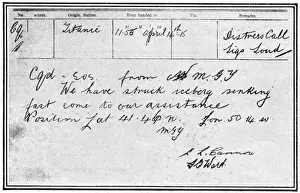 No. Words. Origin. Station. Time handed in. Via. Remarks.
Titanic 11.55 April 14th 15 Distress Call
Sigs Loud
Cqd - Sos. from M. G. Y
We have struck iceberg sinking
fast come to our assistance
Position Lat 41.46 n. Lon. 50.14 w.
MGY